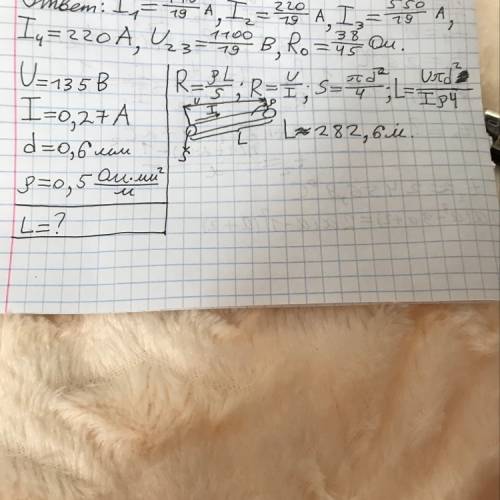 Ответ: I₁ = 110/19 А, I₂ = 220/19 А, I₃ = 550/19 А,
I₄ = 220 А, U₂₃ = 1100/19 В, R₀ = 38/45 Ом.
U = 135 В
I = 0,27 А
d = 0,6 мм
ρ = 0,5 Ом·мм²/м
L = ?
R = ρL/S; R = U/I; S = πd²/4; L = Uπd²/Iρ4
I
L
S
L ≈ 282,6 м.